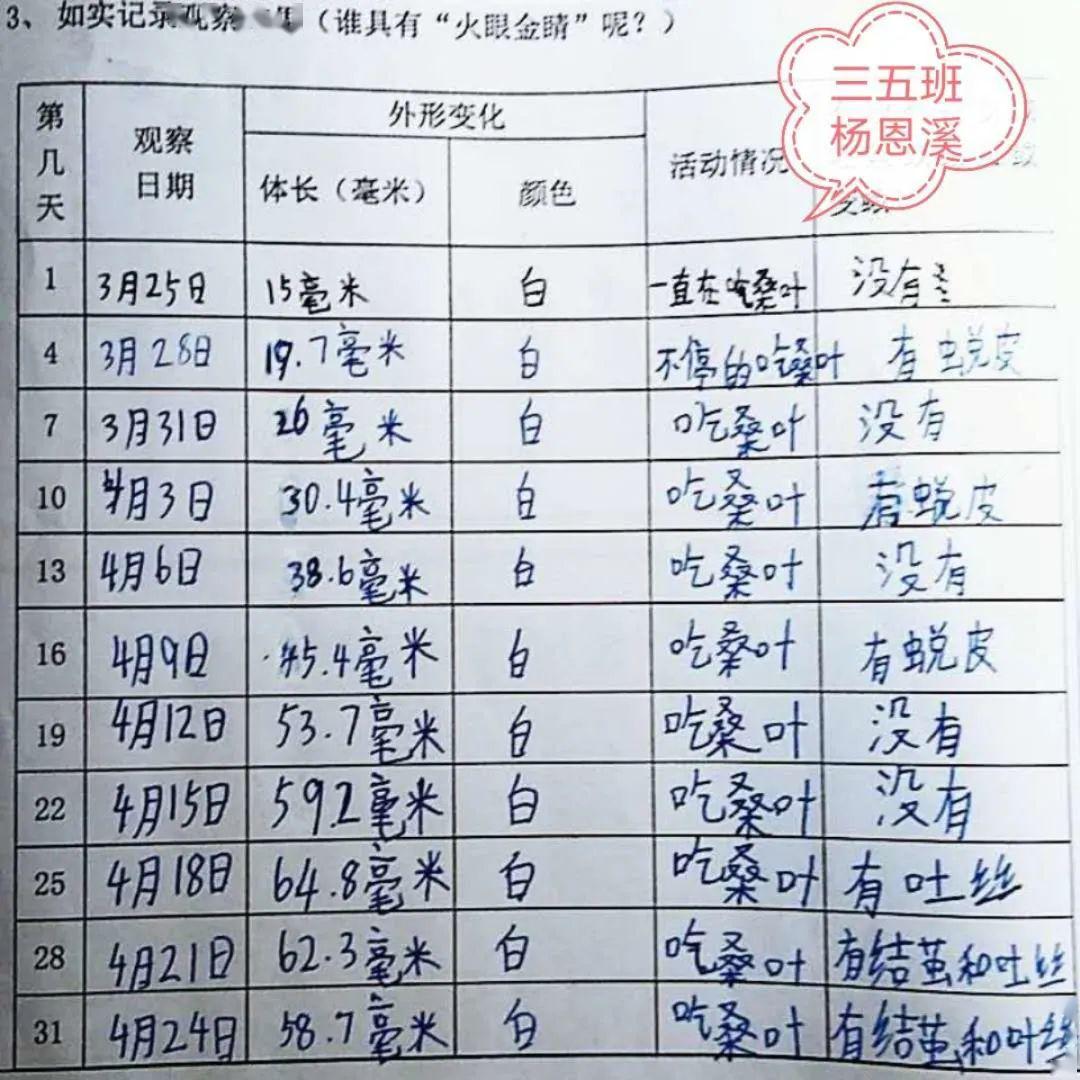 3、如实记录观察（谁具有“火眼金睛”呢？）
三五班
杨恩溪
第几天 观察日期 外形变化 活动情况
体长（毫米） 颜色
1 3月25日 15毫米 白 一直在吃桑叶 没有
4 3月28日 19.7毫米 白 不停的吃桑叶 有虫蜕皮
7 3月31日 26毫米 白 吃桑叶 没有
10 4月3日 30.4毫米 白 吃桑叶 有蜕皮
13 4月6日 38.6毫米 白 吃桑叶 没有
16 4月9日 45.4毫米 白 吃桑叶 有蜕皮
19 4月12日 53.7毫米 白 吃桑叶 没有
22 4月15日 59.2毫米 白 吃桑叶 没有
25 4月18日 64.8毫米 白 吃桑叶 有吐丝
28 4月21日 62.3毫米 白 吃桑叶 有结茧和吐丝
31 4月24日 58.7毫米 白 吃桑叶 有结茧和叶丝